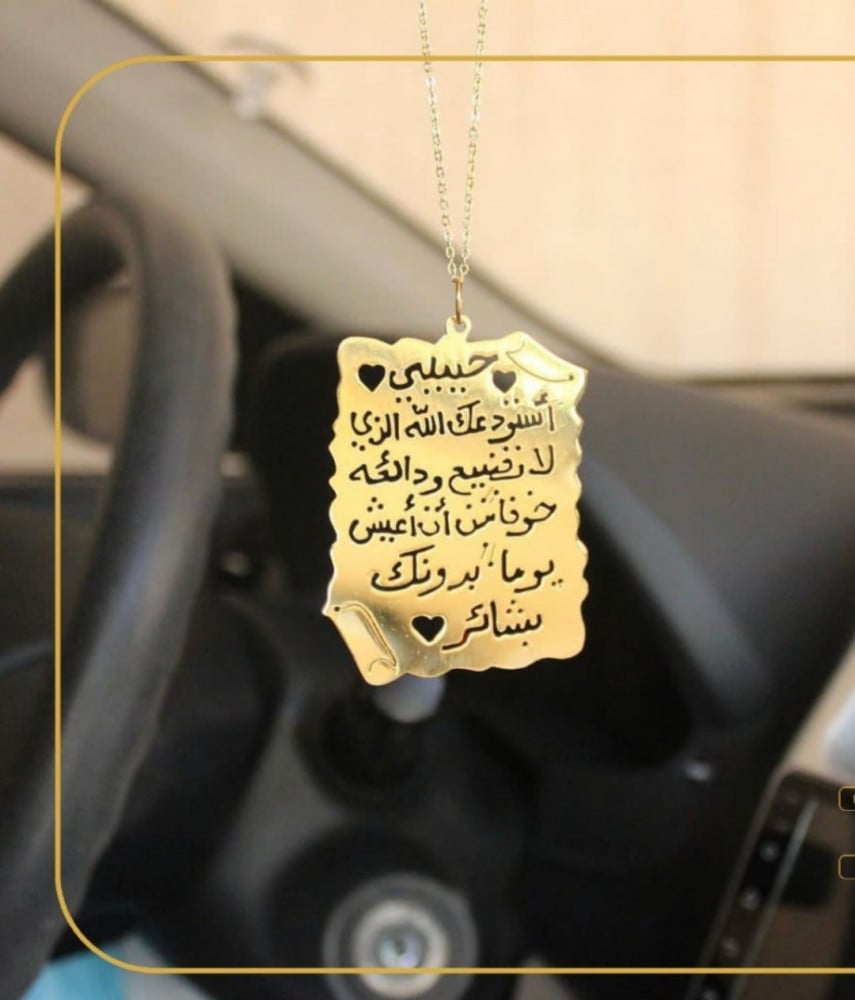 حبيبي
أستودعك الله الذي
لا تضيع ودائعه
خوفا من أن أعيش
يوما بدونك
بشائر